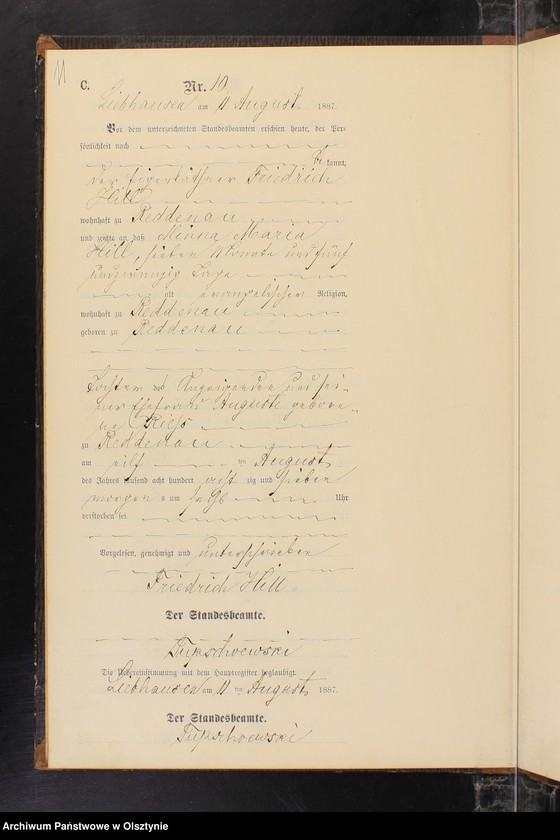 11
C. Nr. 10
Liebhausen am 11 August 1887.
Vor dem unterzeichneten Standesbeamten erschien heute, der Per-
sönlichkeit nach
be kannt,
der Eigenkäthner Friedrich
Hill
wohnhaft zu Reddenau
und zeigte an, daß Minna Maria
Hill, sieben Monate und fünf
undzwanzig Tage
alt evangelischer Religion,
wohnhaft zu Reddenau
geboren zu Reddenau
Tochter des Anzeigenden und sei-
ner Ehefrau Auguste gebore-
ne Riess
zu Reddenau
am eilf ten August
des Jahres tausend acht hundert acht zig und sieben
morgens um sechs Uhr
verstorben sei
Vorgelesen, genehmigt und unterschrieben
Friedrich Hill
Der Standesbeamte.
Tupschoewski
Die Uebereinstimmung mit dem Hauptregister beglaubigt.
Liebhausen am 11 ten August 1887.
Der Standesbeamte.
Tupschoewski
Archiwum Państwowe w Olsztynie